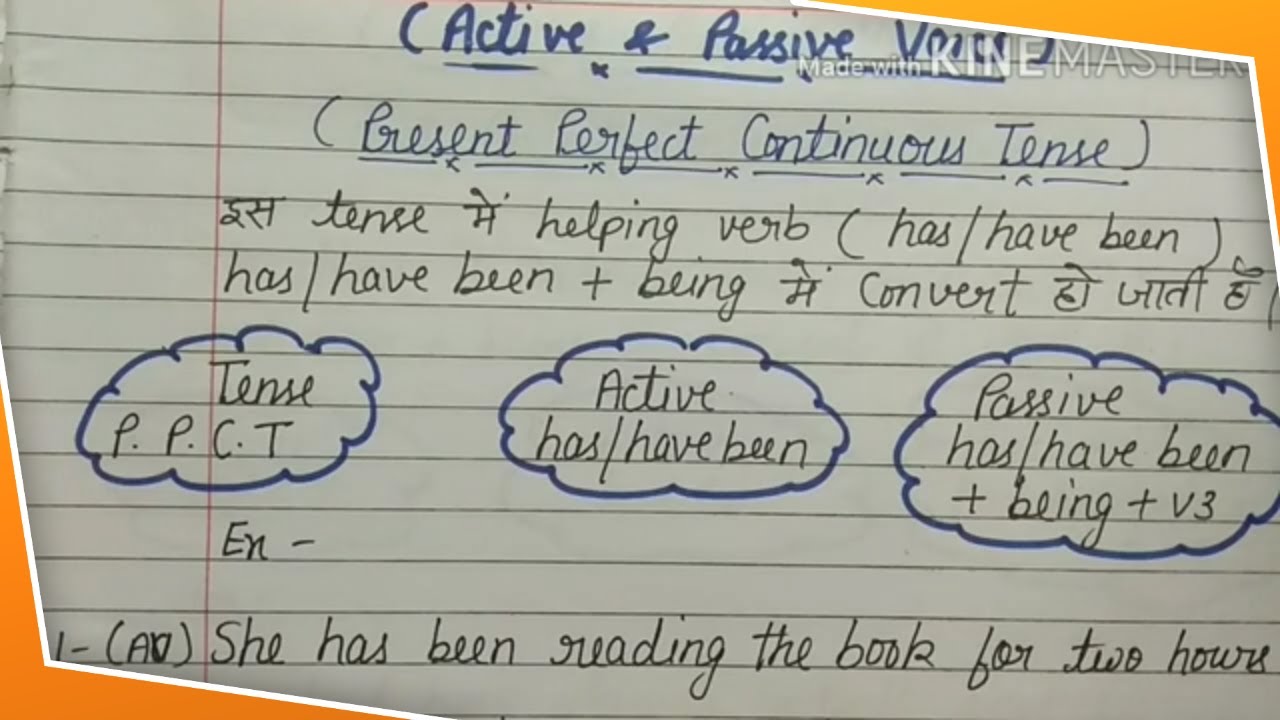 (Active & Passive Voice)
Made with KINEMASTER
(Present Perfect Continuous Tense)
इस tense में helping verb (has/have been)
has/have been + being में convert हो जाती है।
Tense
P. P. C. T
Active
has/have been
Passive
has/have been
+ being + V3
Ex -
1- (AV) She has been reading the book for two hours